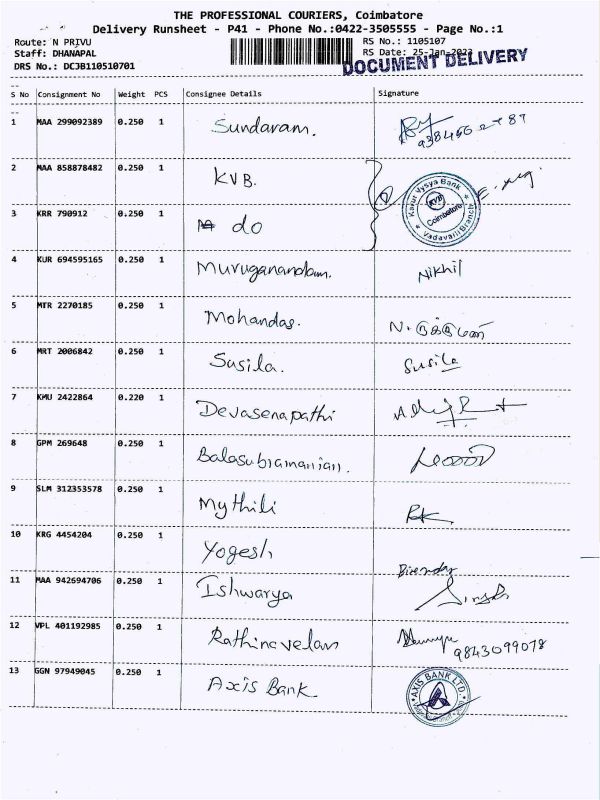 THE PROFESSIONAL COURIERS, Coimbatore
Delivery Runsheet - P41 - Phone No.:0422-3505555 - Page No.:1
Route: N PRIVU
Staff: DHANAPAL
DRS No.: DCJB110510701
RS No.: 1105107
RS Date: 25-Jan-2023
DOCUMENT DELIVERY
S No Consignment No Weight PCS Consignee Details Signature
1 MAA 299092389 0.250 1 Sundaram.
2 MAA 858878482 0.250 1 KVB.
Karur Vysya Bank
KVB
Coimbatore
Vadavalli Branch
3 KRR 790912 0.250 1 do
4 KUR 694595165 0.250 1 Muruganandam. Nikhil
5 MTR 2270185 0.250 1 Mohandas. N.
6 MRT 2006842 0.250 1 Susila. Susila
7 KMU 2422864 0.220 1 Devasenapathi
8 GPM 269648 0.250 1 Balasubramanian.
9 SLM 312353578 0.250 1 Mythili RK
10 KRG 4454204 0.250 1 Yogesh Birendar
11 MAA 942694706 0.250 1 Ishwarya Singh
12 VPL 401192985 0.250 1 Rathinavelan 9843099078
13 GGN 97949045 0.250 1 Axis Bank
AXIS BANK LTD.